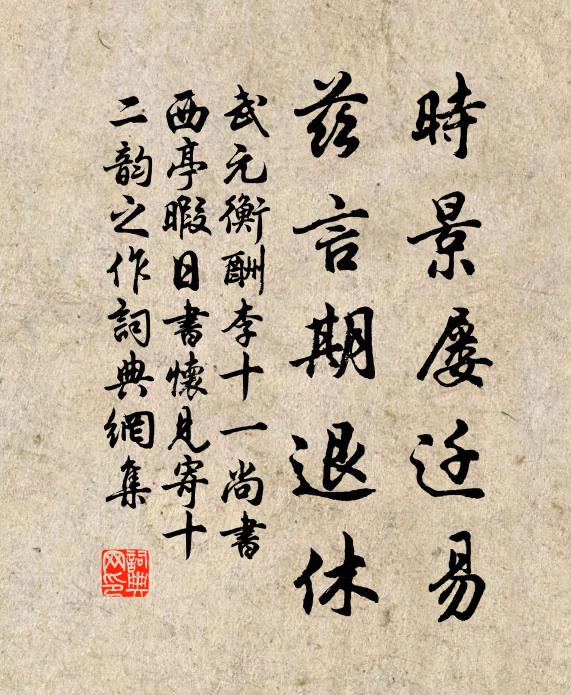 時景屡迁易
茲言期退休
武元衡酬李十一尚書
西亭暇日書懷見寄十
二韵之作詞典網集
詞典
网印